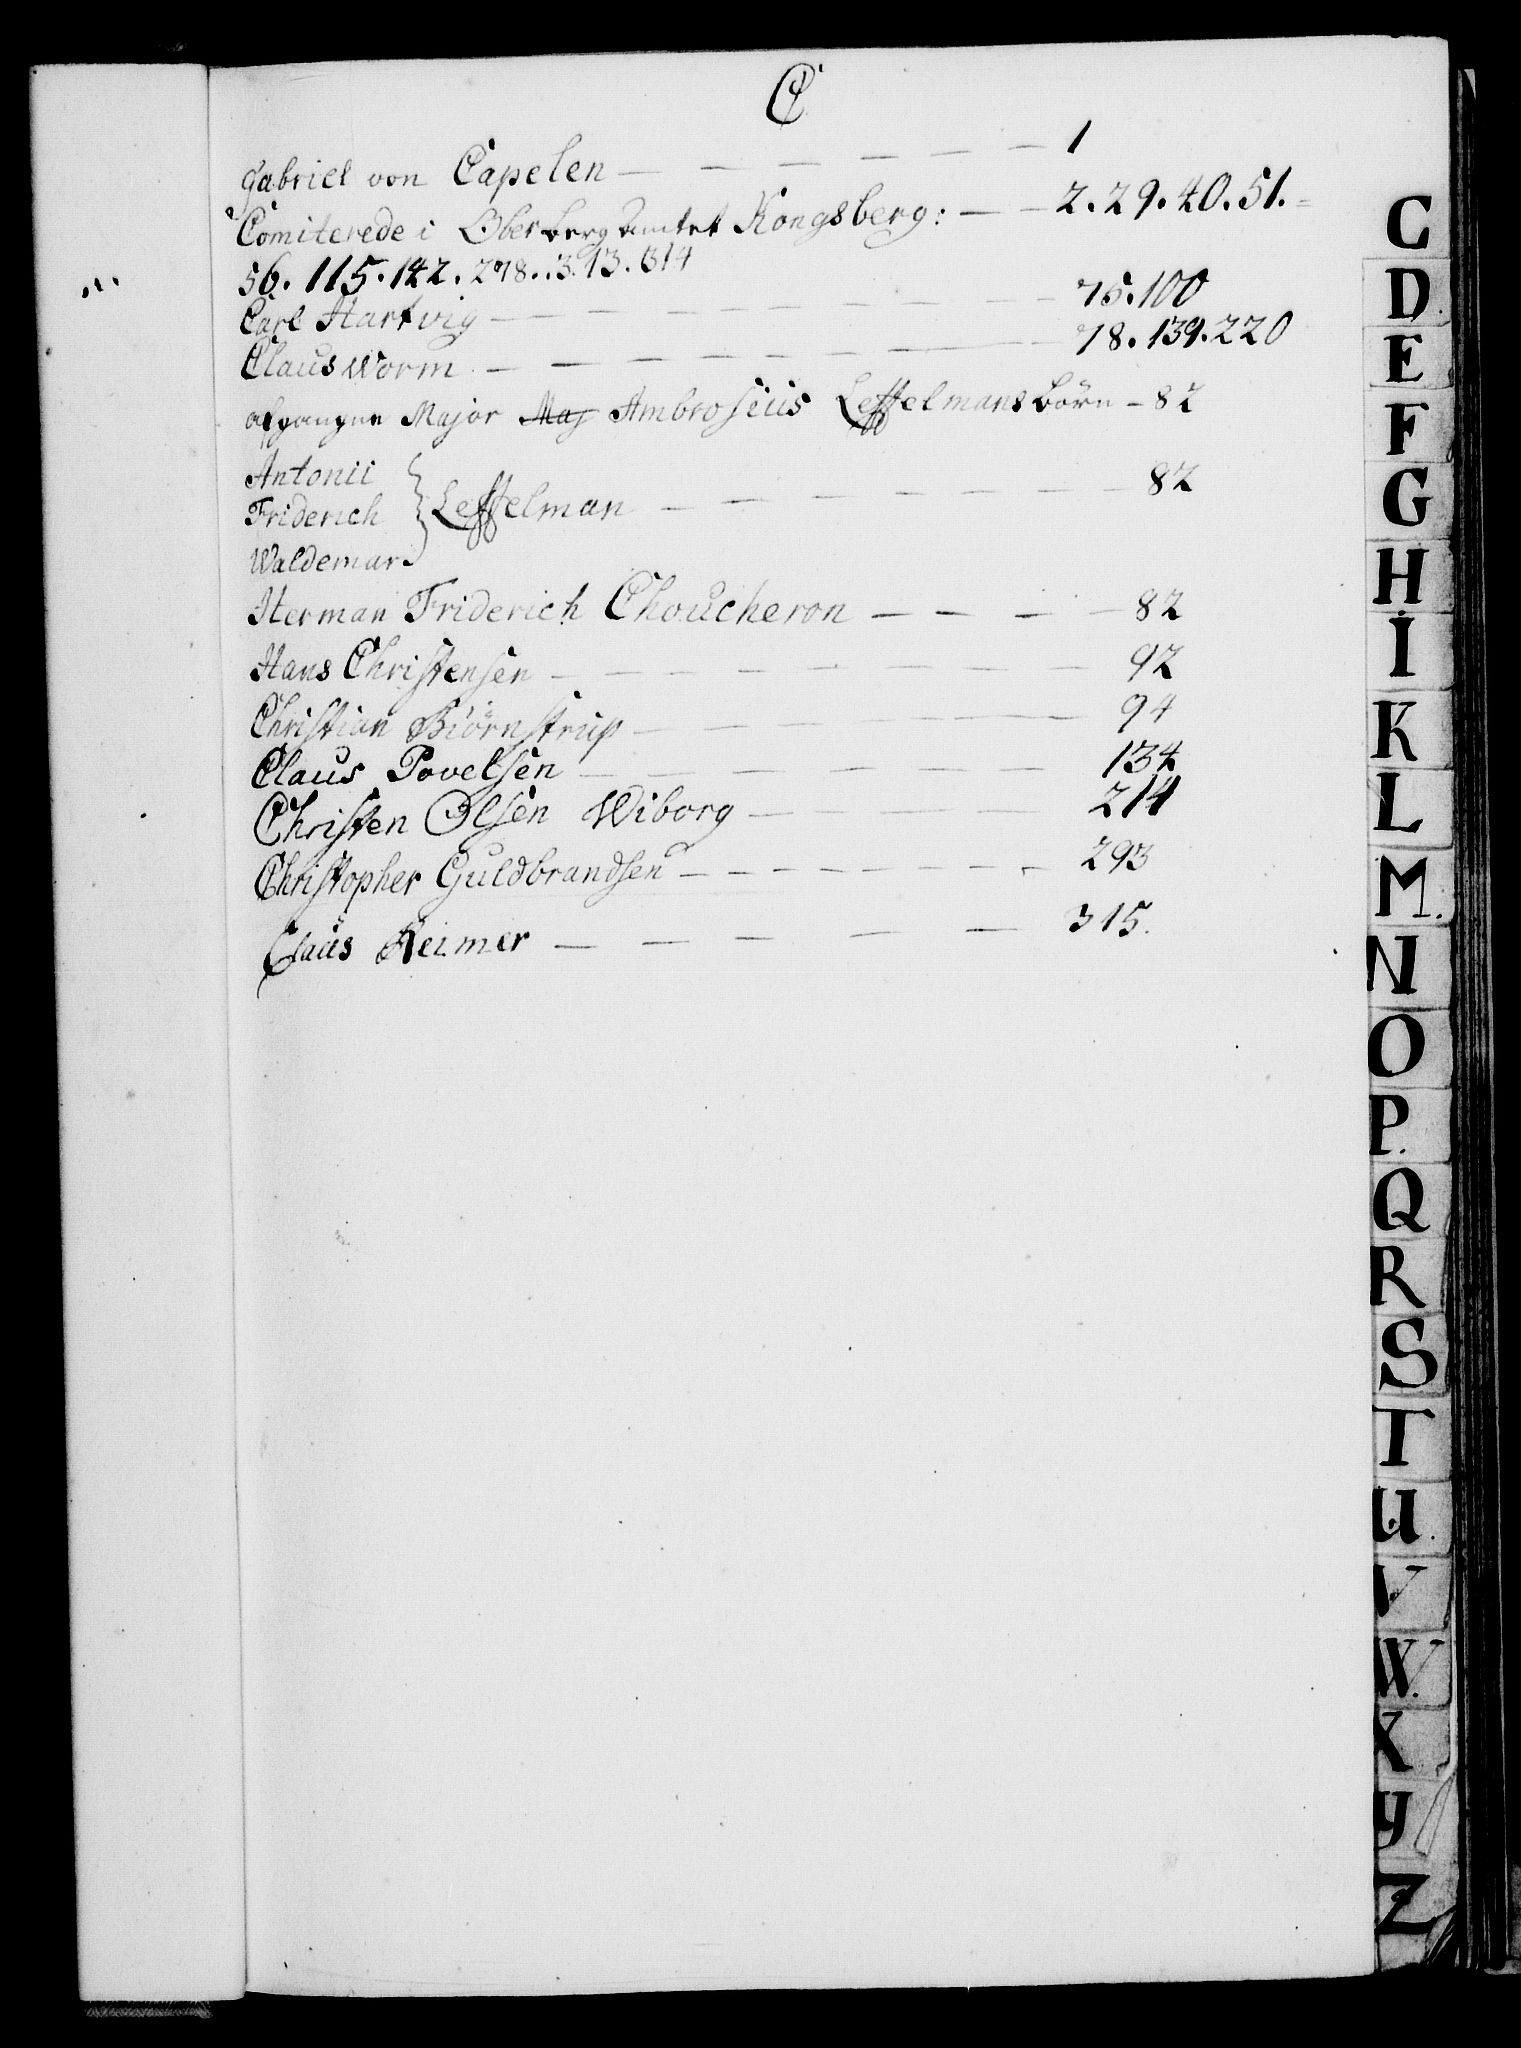 C
Gabriel von Capelen — — — — — — 1
Comiterede i Oberberg Amtet Kongsberg: — — 2. 29. 40. 51. =
56. 115. 142. 278. 313. 314
Carl Hartvig — — — — — — — 75. 100
Claus Worm — — — — — — — 78. 139. 220
afgangne Major Maj Ambrosius Leffelmans Börn - 82
Antonii
Friderich } Leffelman — — — — — — — 82
Waldemar
Herman Friderich Choucheron — — — — 82
Hans Christensen — — — — — — — — 92
Christian Biörnstrup — — — — — — 94
Claus Povelsen — — — — — — — 134
Christen Olsen Wiborg — — — — — 214
Christopher Guldbrandsen — — — — — — — — 293
Claus Reimer — — — — — — 315.
C
D.
E
F
G
H
I
K
L
M.
N
O
P.
Q
R
S
T
U.
V
W.
X
Y
Z